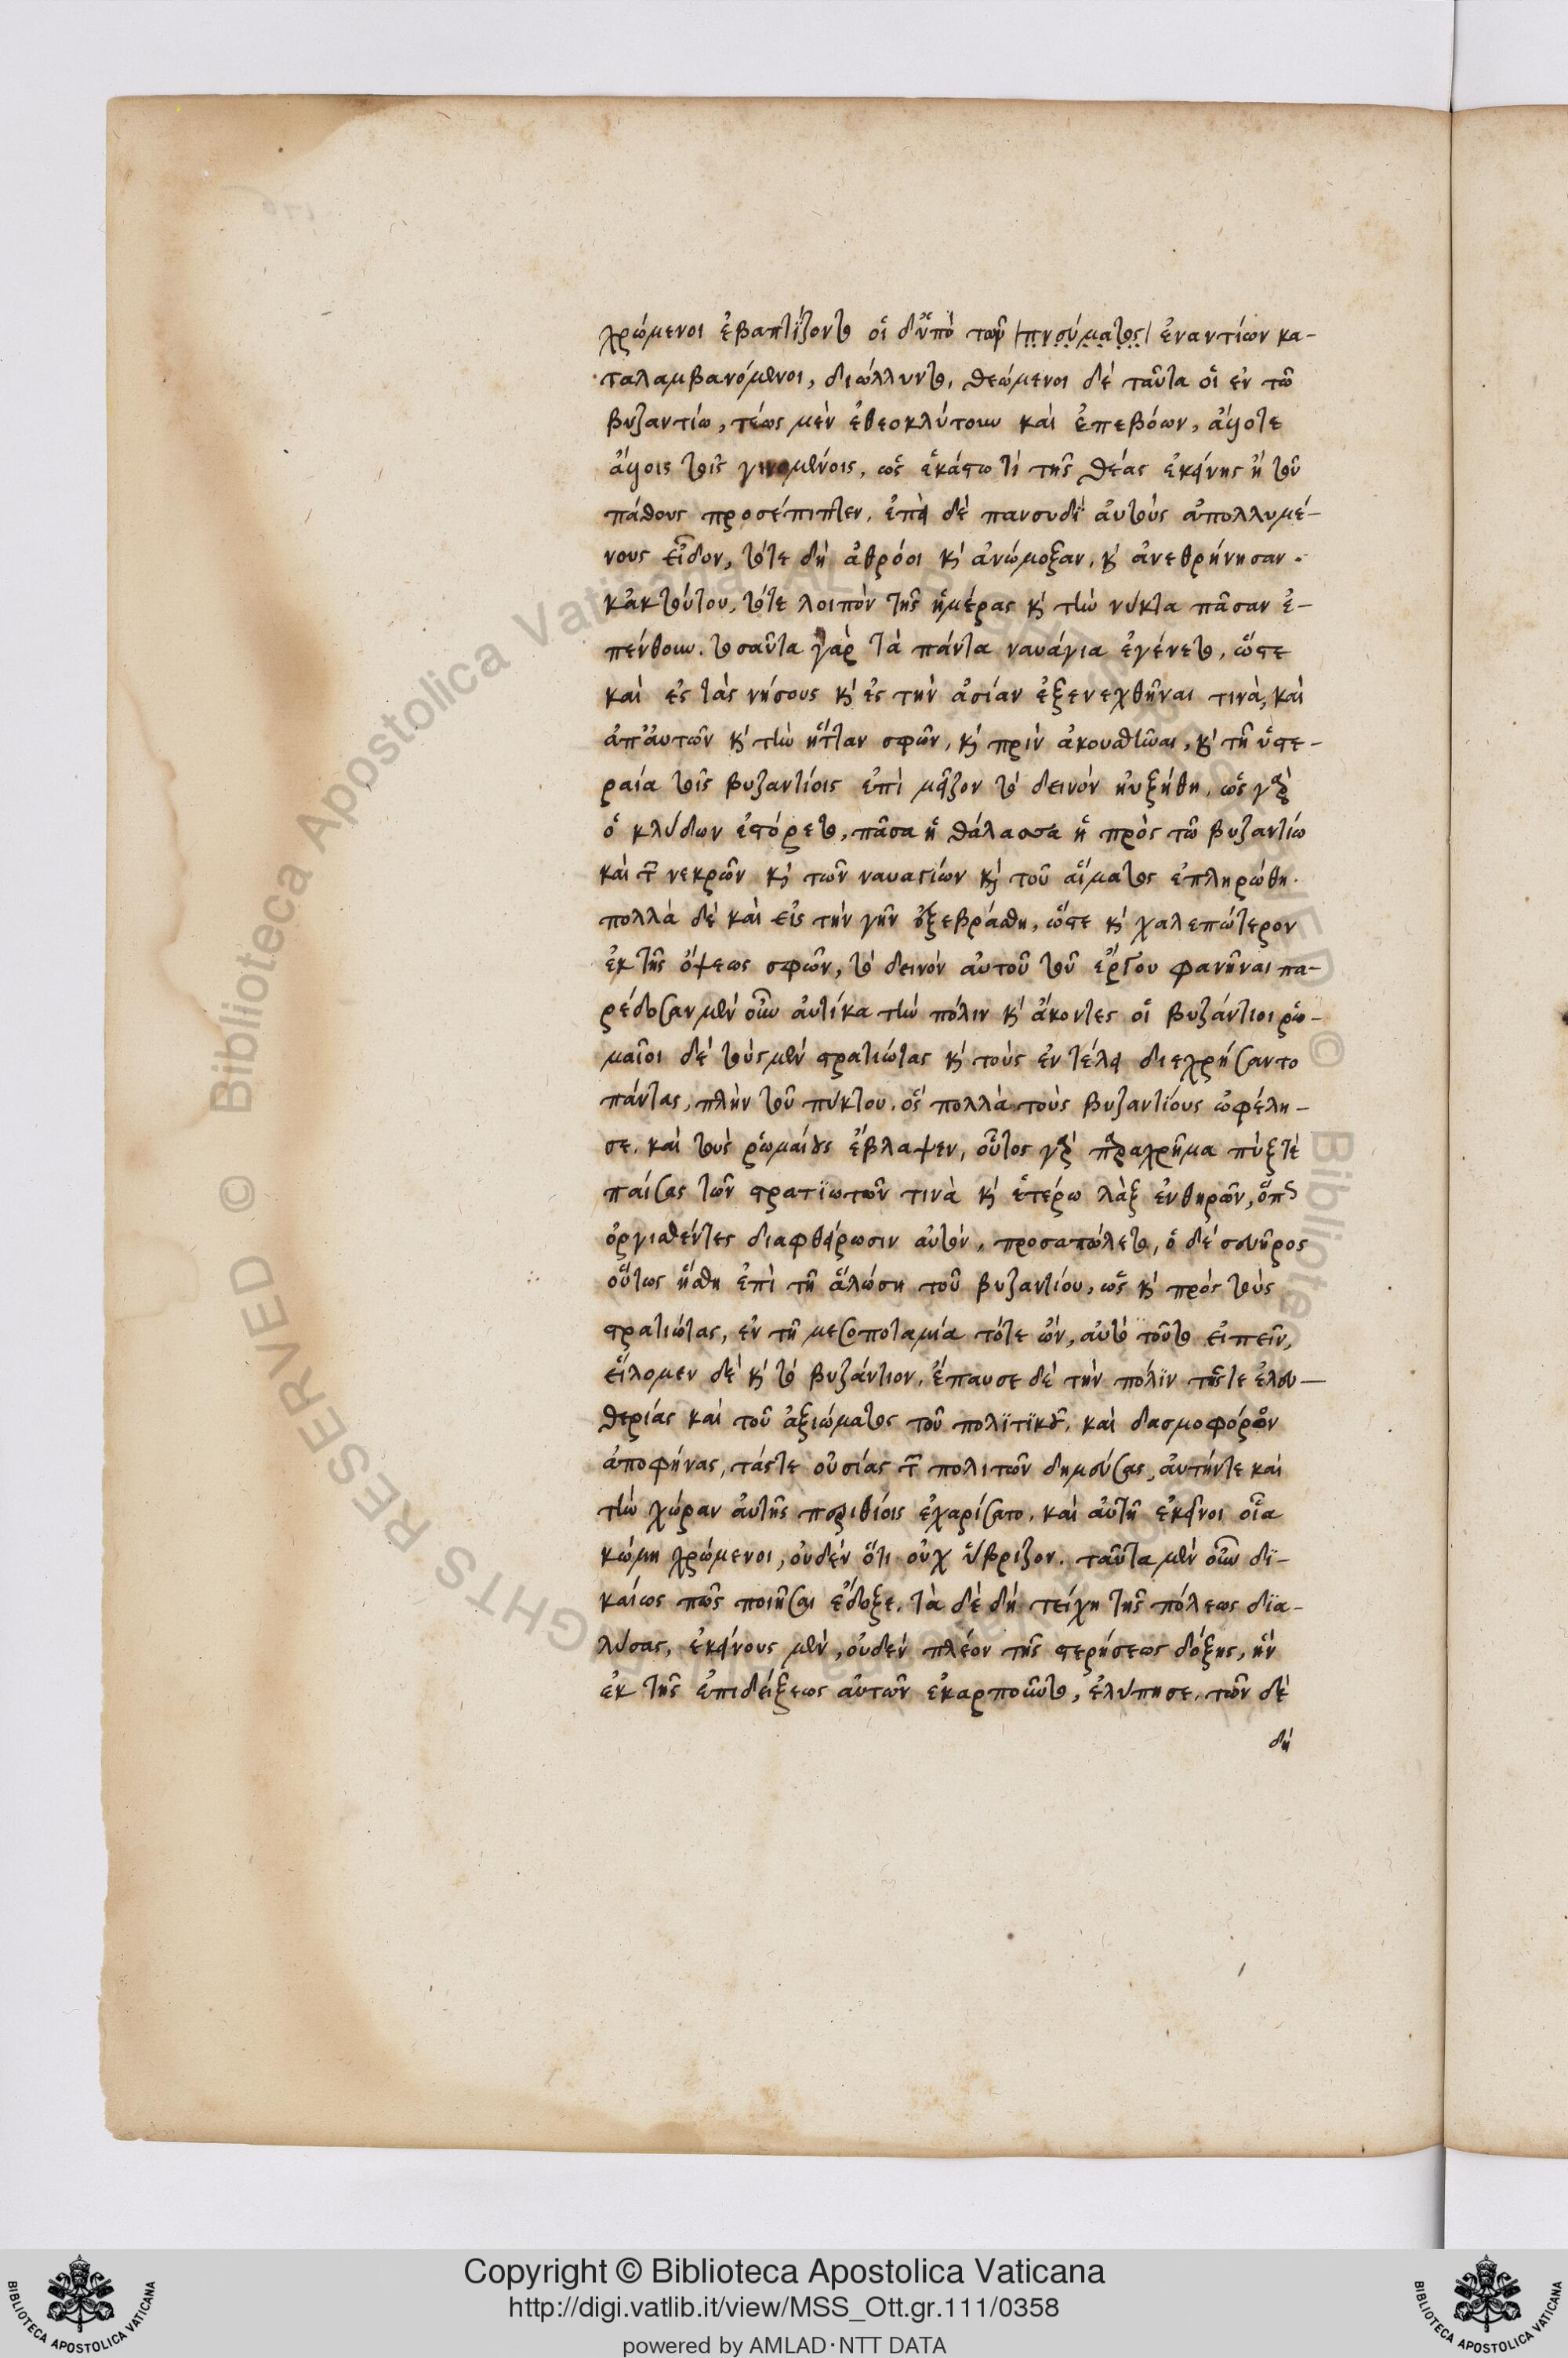 χρώμενοι ἐβαπτίζοντο οἱ δ' ὑπὸ τοῦ πνεύματος ἐναντίων κα-
ταλαμβανόμενοι, διώλλυντο. θεώμενοι δὲ ταῦτα οἱ ἐν τῶ
βυζαντίω, τέως μὲν ἐθεοκλύτουν καὶ ἐπεβόων, ἄλλοτε
ἄλλοις τοῖς γινομένοις, ὡς ἑκάστω τί τῆς θέας ἐκείνης ἢ τοῦ
πάθους προσέπιπτεν. ἐπεὶ δὲ πανσυδὶ αὐτοὺς ἀπολλυμέ-
νους εἶδον, τότε δὴ ἀθρόοι κ' ἀνώμοξαν, κ' ἀνεθρήνησαν.
κἀκ τούτου, τότε λοιπὸν τῆς ἡμέρας κ' τὴν νύκτα πᾶσαν ἐ-
πένθουν. τοσαῦτα γὰρ τὰ πάντα ναυάγια ἐγένετο, ὥστε
καὶ ἐς τὰς νήσους κ' ἐς τὴν ἀσίαν ἐξενεχθῆναι τινὰ, καὶ
ἀπ' αὐτῶν κ' τὴν ἧτταν σφῶν, κ' πρὶν ἀκουσθῆναι, κ' τῇ ὑστε-
ραία τοῖς βυζαντίοις ἐπὶ μεῖζον τὸ δεινὸν ηὐξήθη. ὡς γὰρ
ὁ κλύδων ἐστόρετο, πᾶσα ἡ θάλασσα ἡ πρὸς τῶ βυζαντίω
καὶ τῶν νεκρῶν κ' τῶν ναυαγίων κ' τοῦ αἵματος ἐπληρώθη.
πολλὰ δὲ καὶ εἰς τὴν γῆν ἐξεβράσθη, ὥστε κ' χαλεπώτερον
ἐκ τῆς ὄψεως σφῶν, τὸ δεινὸν αὐτοῦ τοῦ ἔργου φανῆναι πα-
ρέδοσαν μὲν οὖν αὐτίκα τὴν πόλιν κ' ἄκοντες οἱ βυζάντιοι ῥω-
μαῖοι δὲ τοὺς μὲν στρατιώτας κ' τοὺς ἐν τέλει διεχρήσαντο
πάντας, πλὴν τοῦ πύκτου. ὃς πολλὰ τοὺς βυζαντίους ὠφέλη-
σε. καὶ τοὺς ῥωμαίους ἔβλαψεν, οὗτος γὰρ παραχρῆμα πύξ τὲ
παίσας τῶν στρατϊωτῶν τινὰ κ' ἑτέρω λὰξ ἐνθηρῶν, ὅπως
ὀργισθέντες διαφθείρωσιν αὐτόν, προσαπώλετο, ὁ δὲ σευῆρος
οὕτως ἥσθη ἐπὶ τῇ ἁλώση τοῦ βυζαντίου, ὡς κ' πρὸς τοὺς
στρατιώτας, ἐν τῇ μεσοποταμία τότε ὢν, αὐτὸ τοῦτο εἰπεῖν,
εἵλομεν δὲ κ' τὸ βυζάντιον. ἔπαυσε δὲ τὴν πόλϊν τῆς τε ἐλευ-
θερίας καὶ τοῦ ἀξιώματος τοῦ πολϊτϊκοῦ. καὶ δασμοφόρον
ἀποφήνας, τάς τε οὐσίας τῶν πολιτῶν δημεύσας, αὐτήν τε καὶ
τὴν χώραν αὐτῆς περιθίοις ἐχαρίσατο. καὶ αὐτῇ ἐκεῖνοι οἷα
κώμη χρώμενοι, οὐδὲν ὅτι οὐχ ὕβριζον. ταῦτα μὲν οὖν δϊ-
καίως πως ποιῆσαι ἔδοξε. τὰ δὲ δὴ τείχη τῆς πόλεως δϊα-
λύσας, ἐκείνους μὲν, οὐδὲν πλέον τῆς στερήσεως δόξης, ἣν
ἐκ τῆς ἐπιδείξεως αὐτῶν ἐκαρποῦντο, ἐλύπησε. τῶν δὲ
δὴ
Copyright © Biblioteca Apostolica Vaticana
http://digi.vatlib.it/view/MSS_Ott.gr.111/0358
powered by AMLAD·NTT DATA